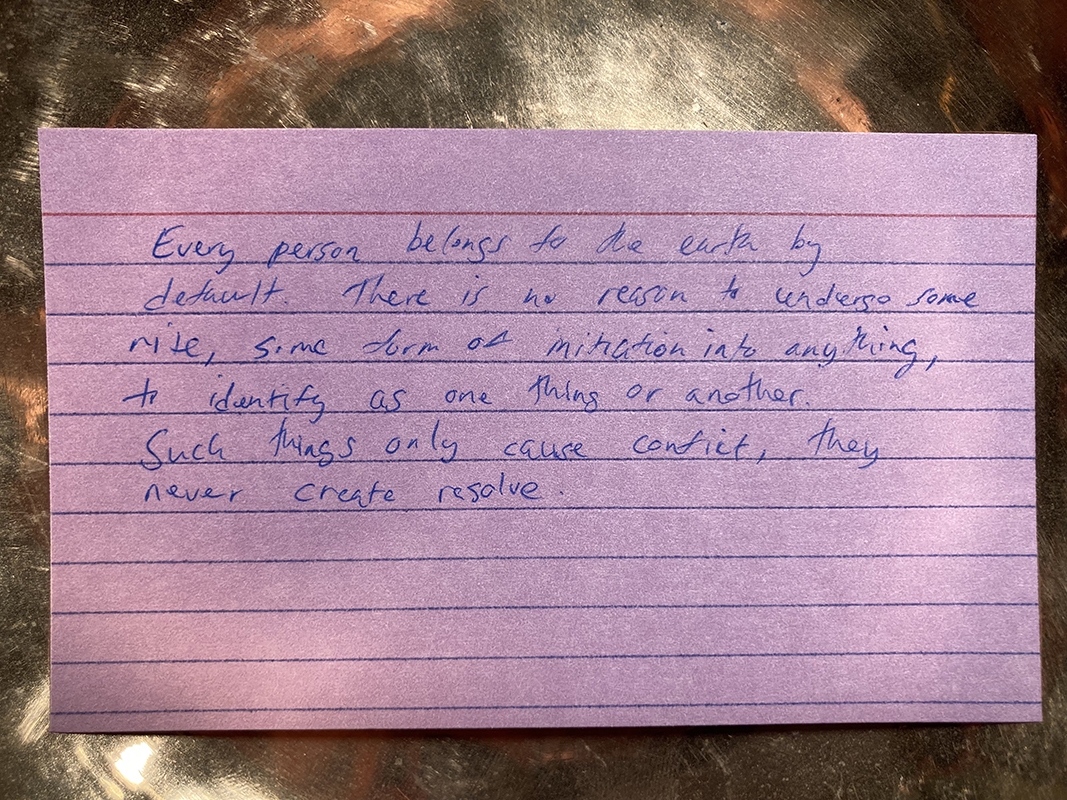 Every person belongs to the earth by
default. There is no reason to undergo some
rite, some form of initiation into anything,
to identify as one thing or another.
Such things only cause conflict, they
never create resolve.